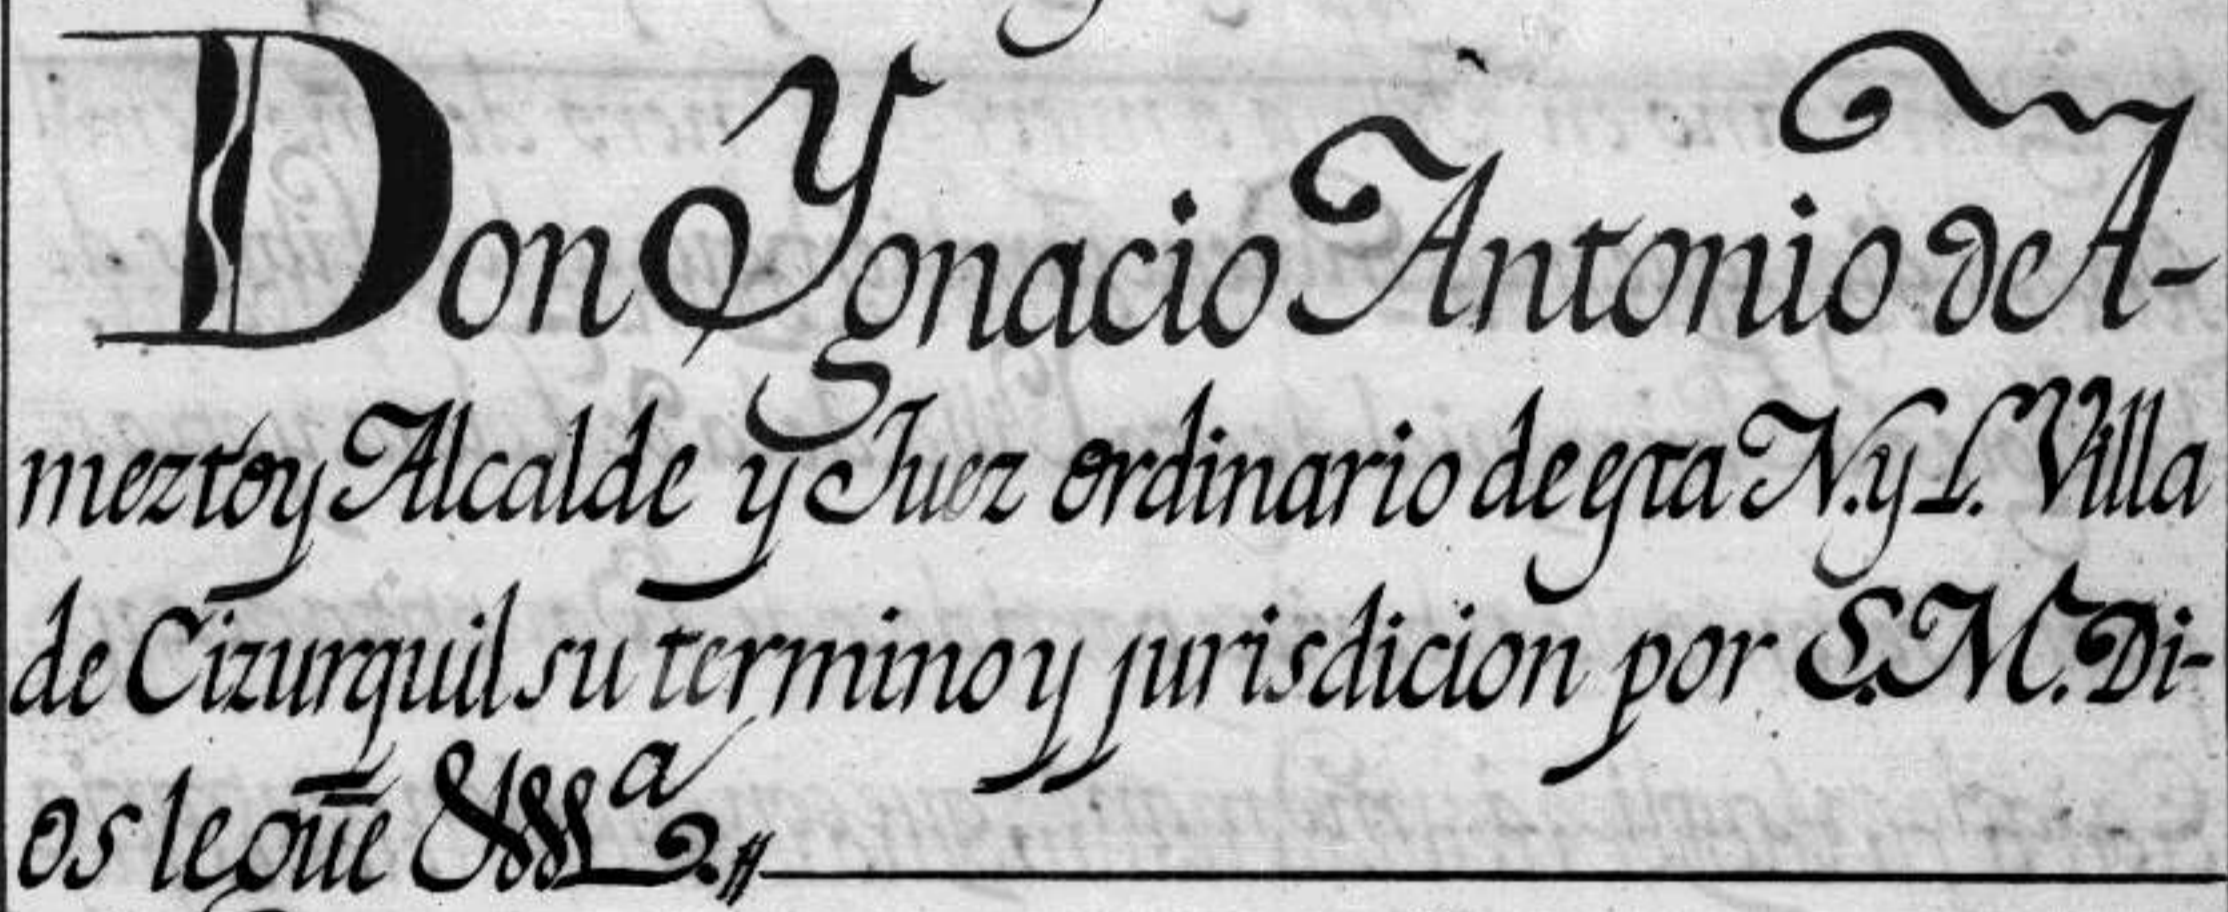 Don Ygnacio Antonio de A-
meztoy Alcalde y Juez ordinario de esta N. y L. Villa
de Cizurquil su termino y jurisdicion por S. M. Di-
os le gũe &a.